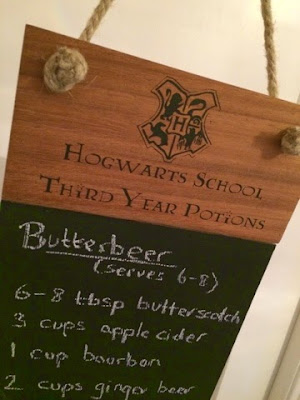 H
HOGWARTS SCHOOL
THIRD YEAR POTIONS
Butterbeer
(serves 6-8)
6-8 tbsp butterscotch
3 cups apple cider
1 cup bourbon
2 cups ginger beer